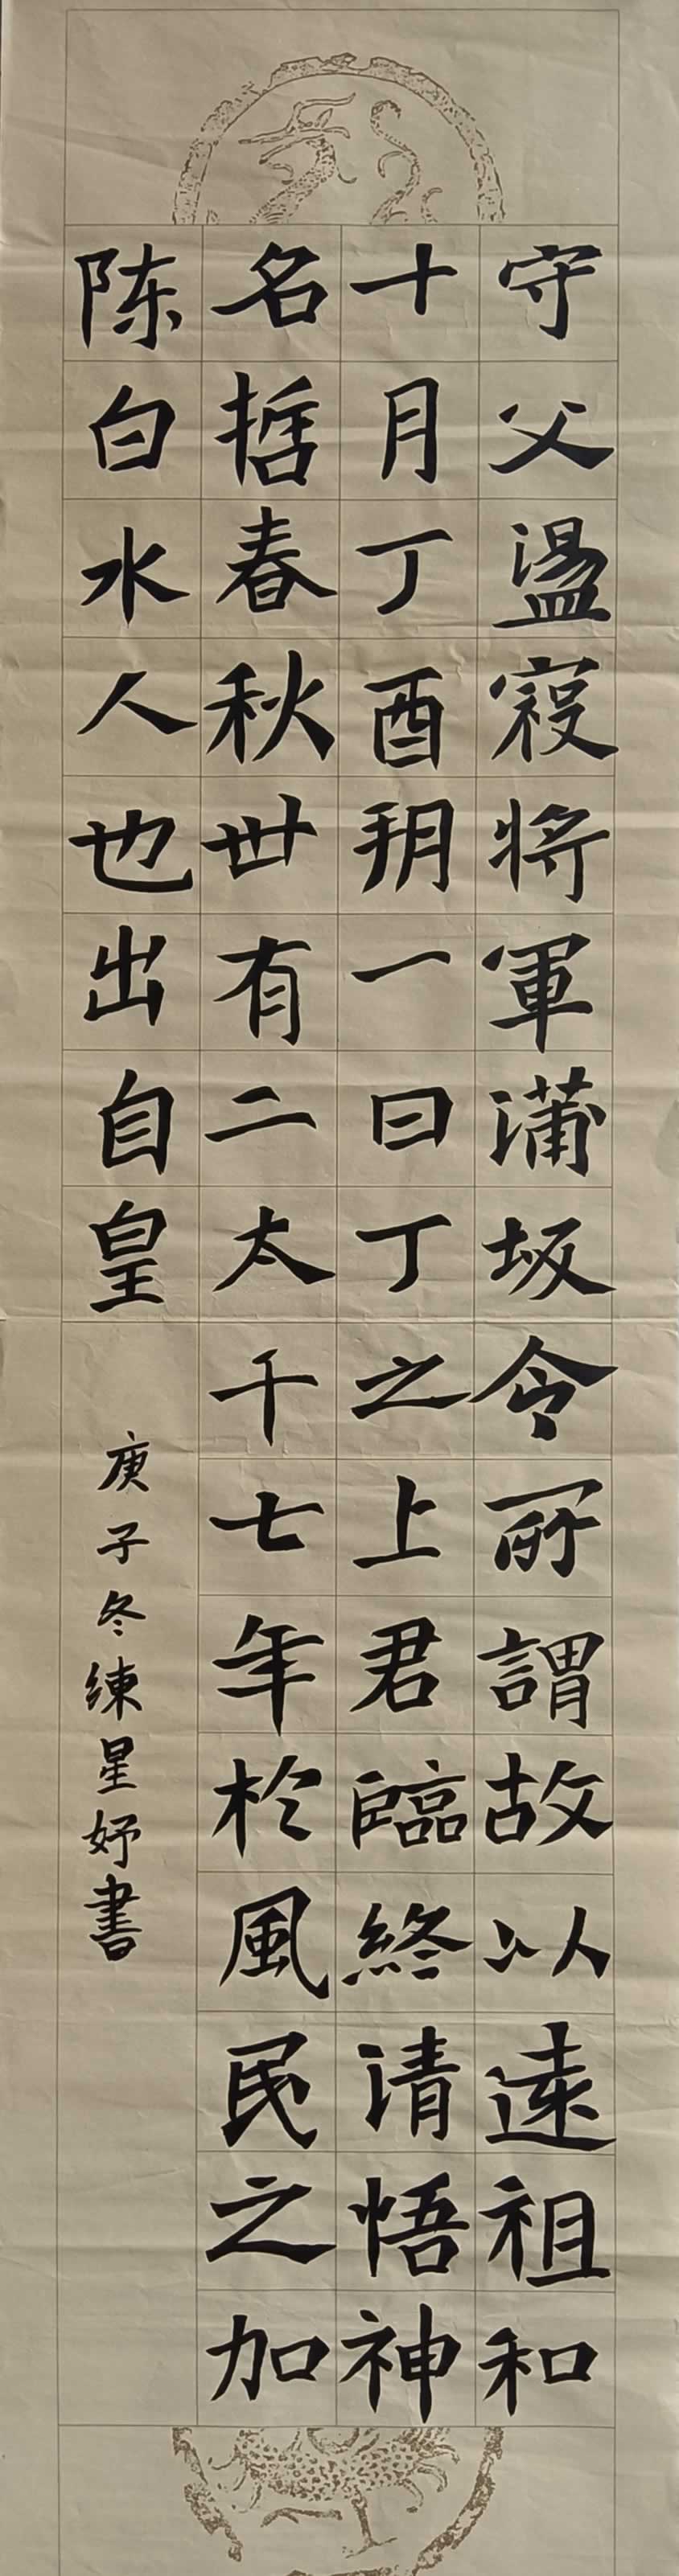 守父盪寇将軍蒲坂令所謂故以遠祖和
十月丁酉朔一日丁之上君臨終清悟神
名哲春秋世有二太千七年於風民之加
陈白水人也出自皇
庚子冬練星妤書